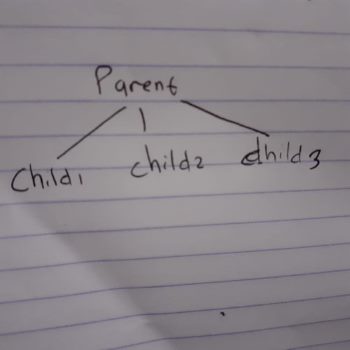 Parent
Child1 child2 child3